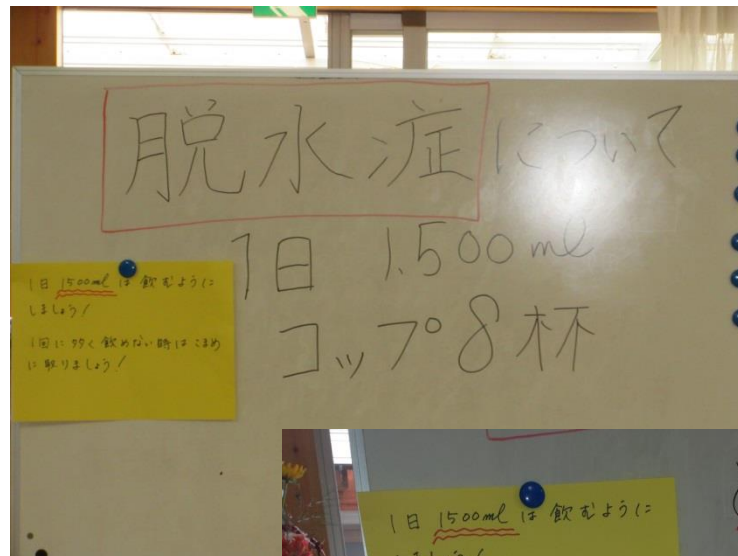 脱水症について
1日 1.500ml
コップ8杯
1日 1500ml は 飲むように
しましょう!
1回に多く飲めない時はこまめ
に取りましょう!
1日 1500ml は 飲むように